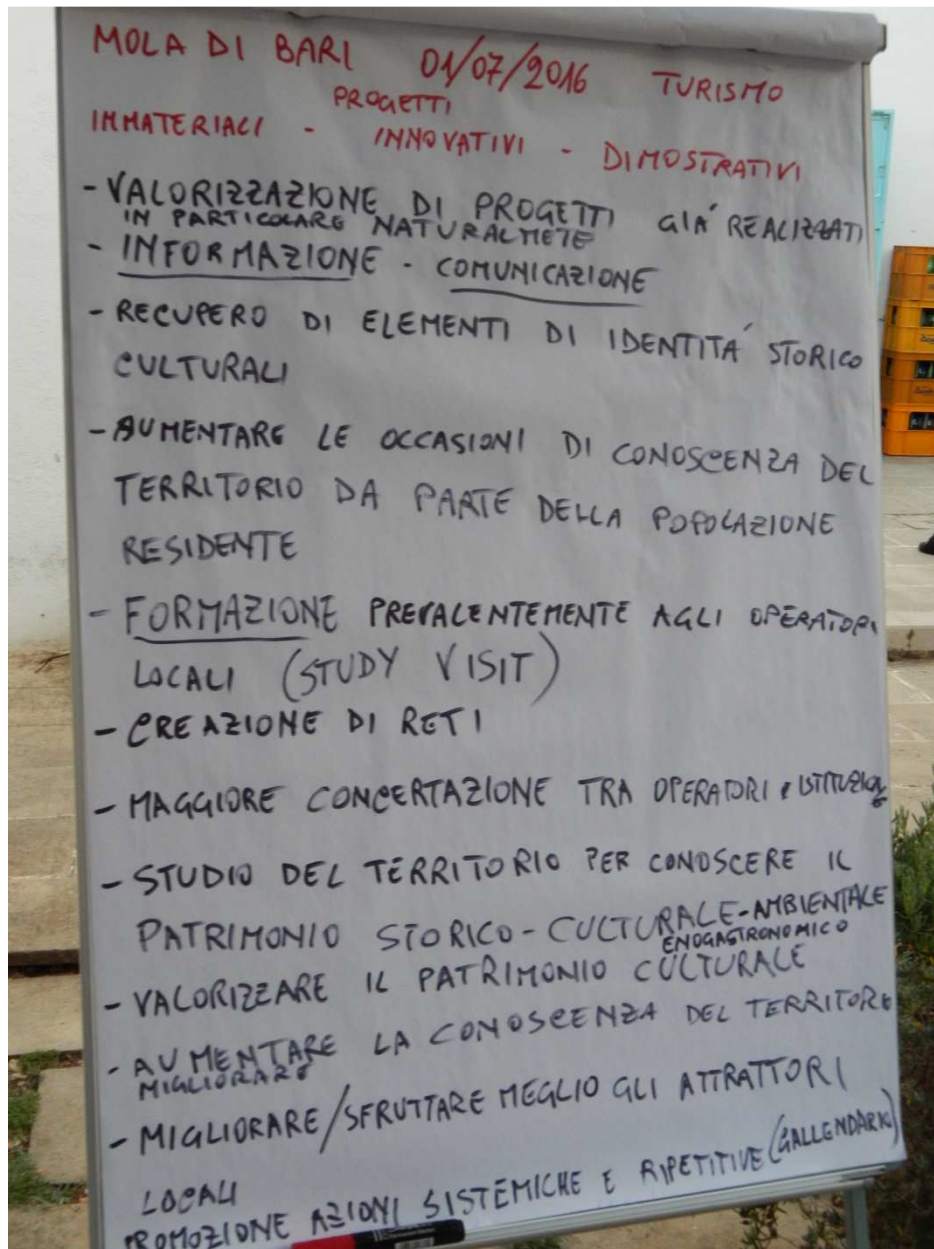 MOLA DI BARI 01/07/2016 TURISMO
PROGETTI
IMMATERIALI - INNOVATIVI - DIMOSTRATIVI
- VALORIZZAZIONE DI PROGETTI GIÀ REALIZZATI
IN PARTICOLARE NATURALMETE
- INFORMAZIONE - COMUNICAZIONE
- RECUPERO DI ELEMENTI DI IDENTITÀ STORICO
CULTURALI
- AUMENTARE LE OCCASIONI DI CONOSCENZA DEL
TERRITORIO DA PARTE DELLA POPOLAZIONE
RESIDENTE
- FORMAZIONE PREVALENTEMENTE AGLI OPERATORI
LOCALI (STUDY VISIT)
- CREAZIONE DI RETI
- MAGGIORE CONCERTAZIONE TRA OPERATORI e ISTITUZIONE
- STUDIO DEL TERRITORIO PER CONOSCERE IL
PATRIMONIO STORICO-CULTURALE-AMBIENTALE
ENOGASTRONOMICO
- VALORIZZARE IL PATRIMONIO CULTURALE
- AUMENTARE LA CONOSCENZA DEL TERRITORE
MIGLIORARE
- MIGLIORARE/SFRUTTARE MEGLIO GLI ATTRATTORI
LOCALI
PROMOZIONE AZIONI SISTEMICHE E RIPETITIVE (CALLENDARIO)